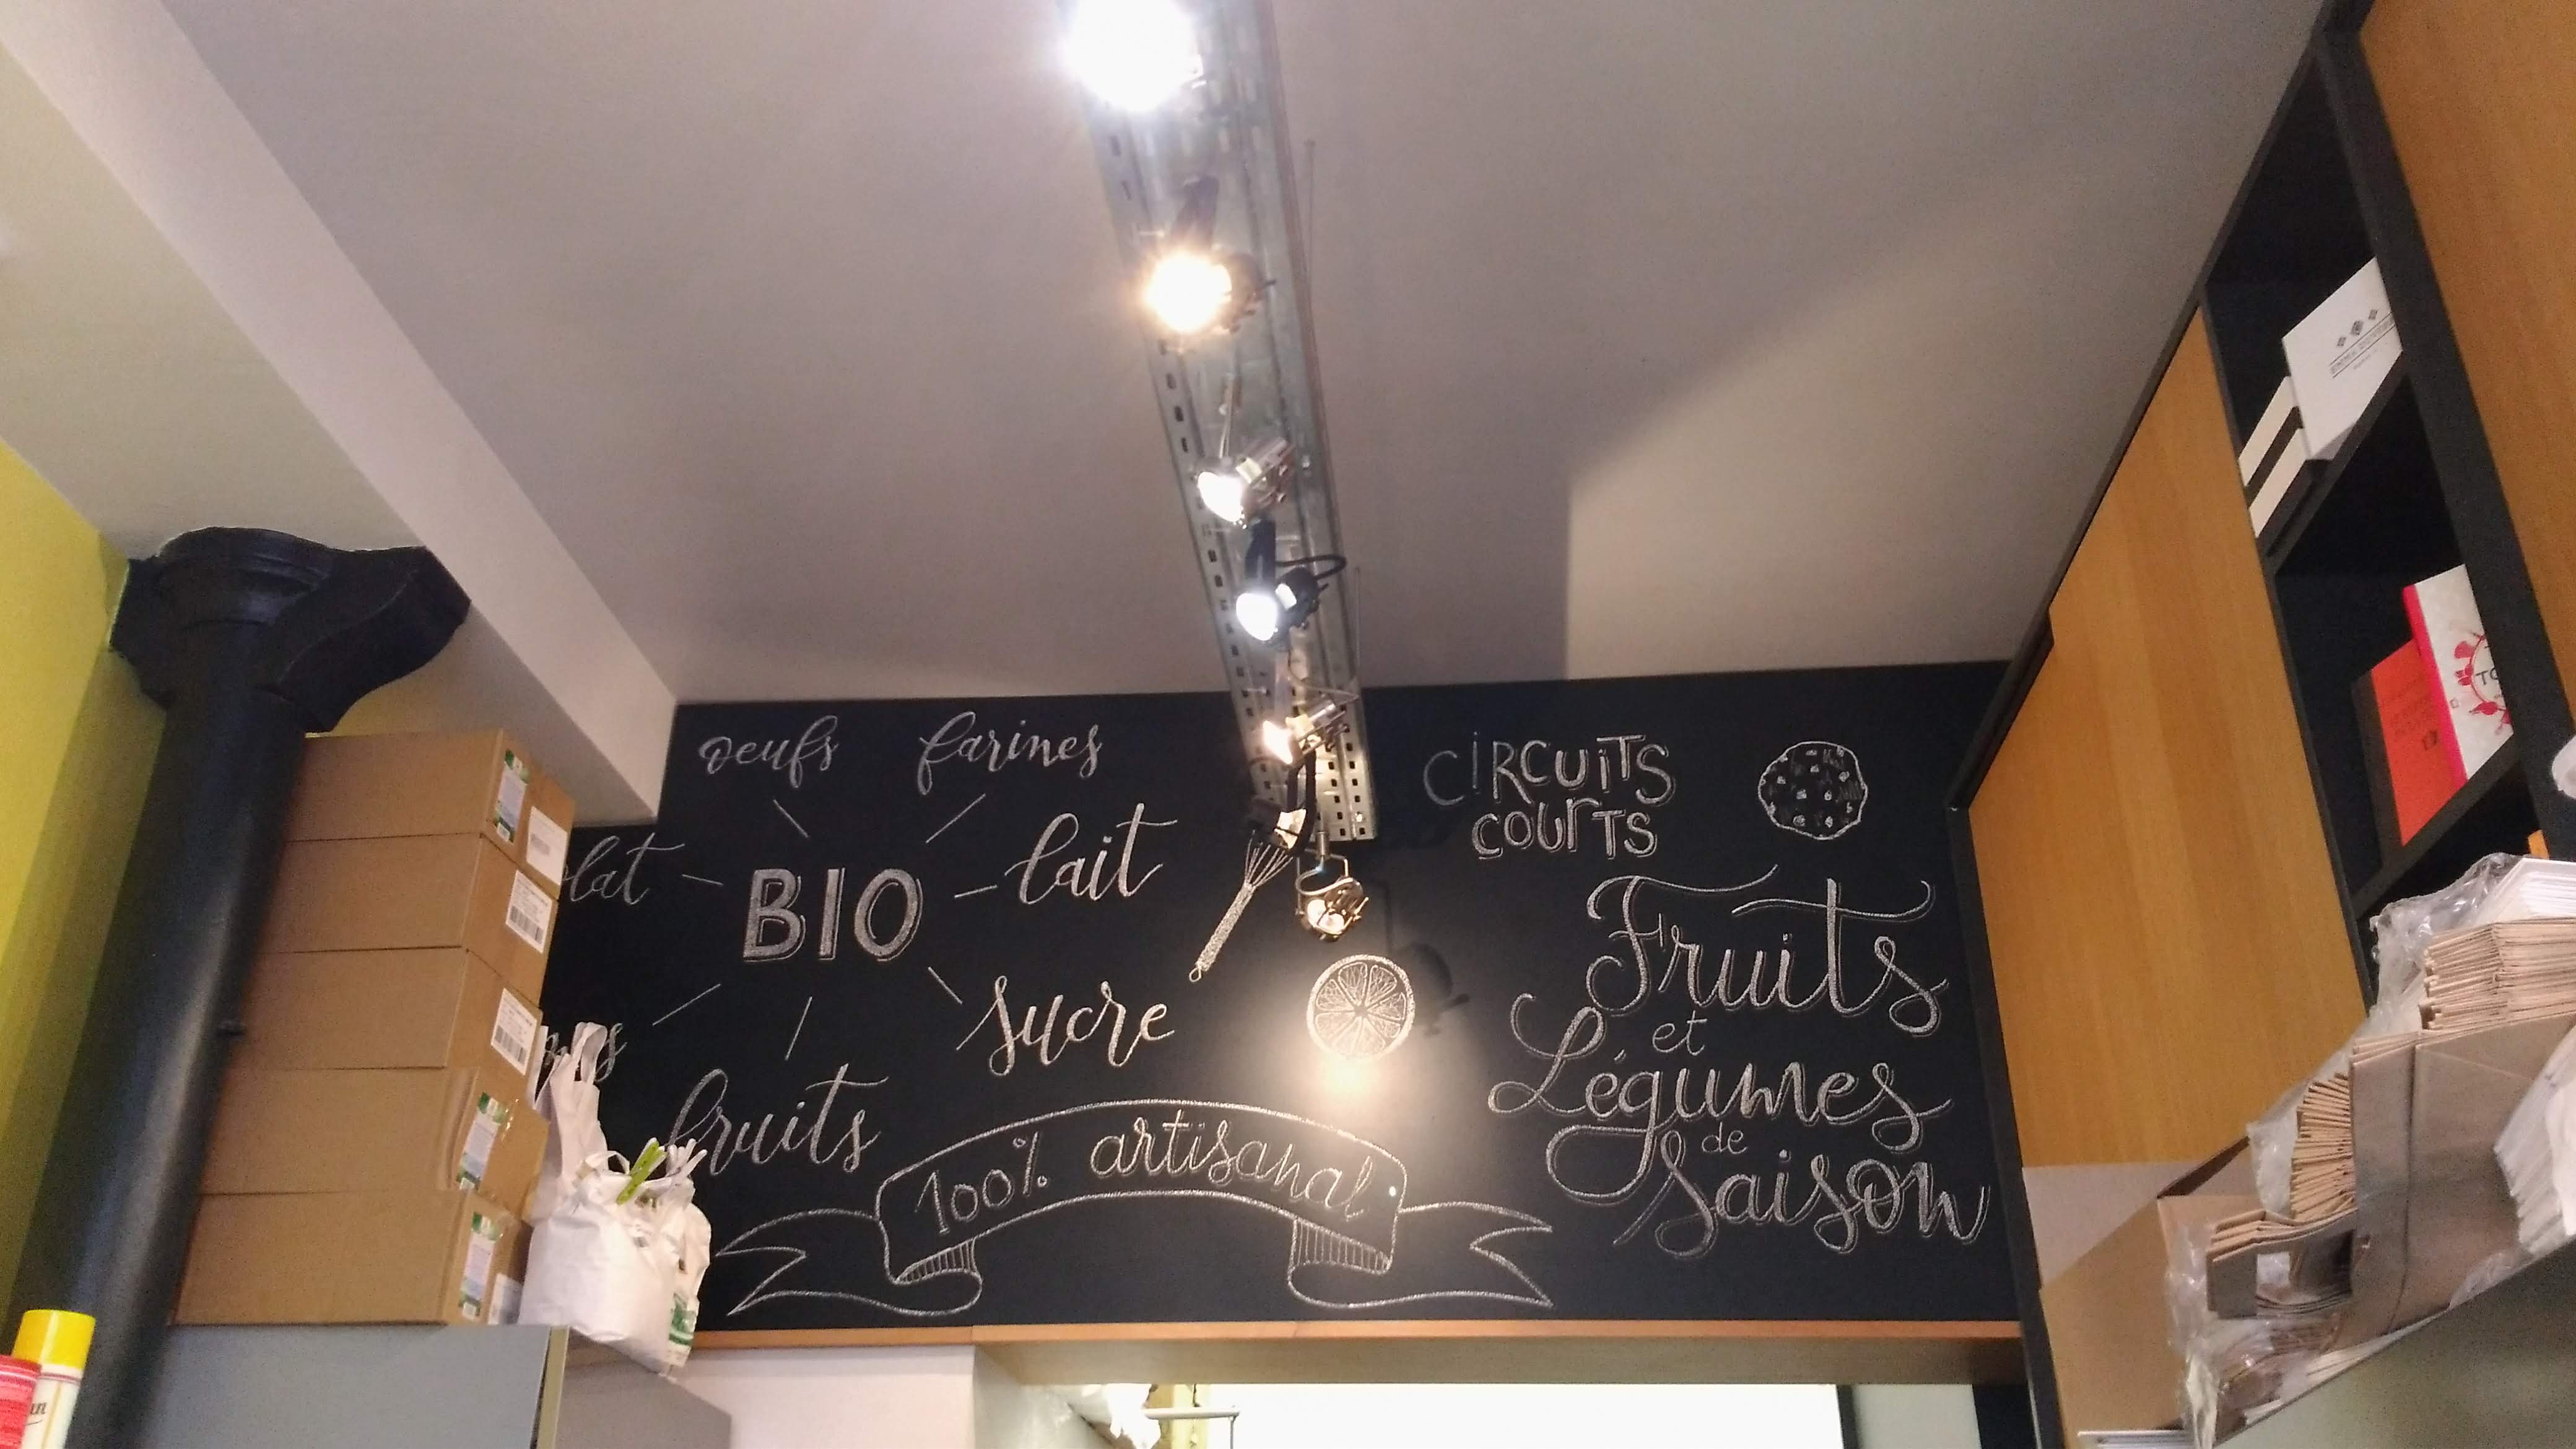 oeufs
farines
lait
BIO
sucre
fruits
100% artisanal
CIRCUITS
COURTS
Fruits
et
Légumes
de
Saison